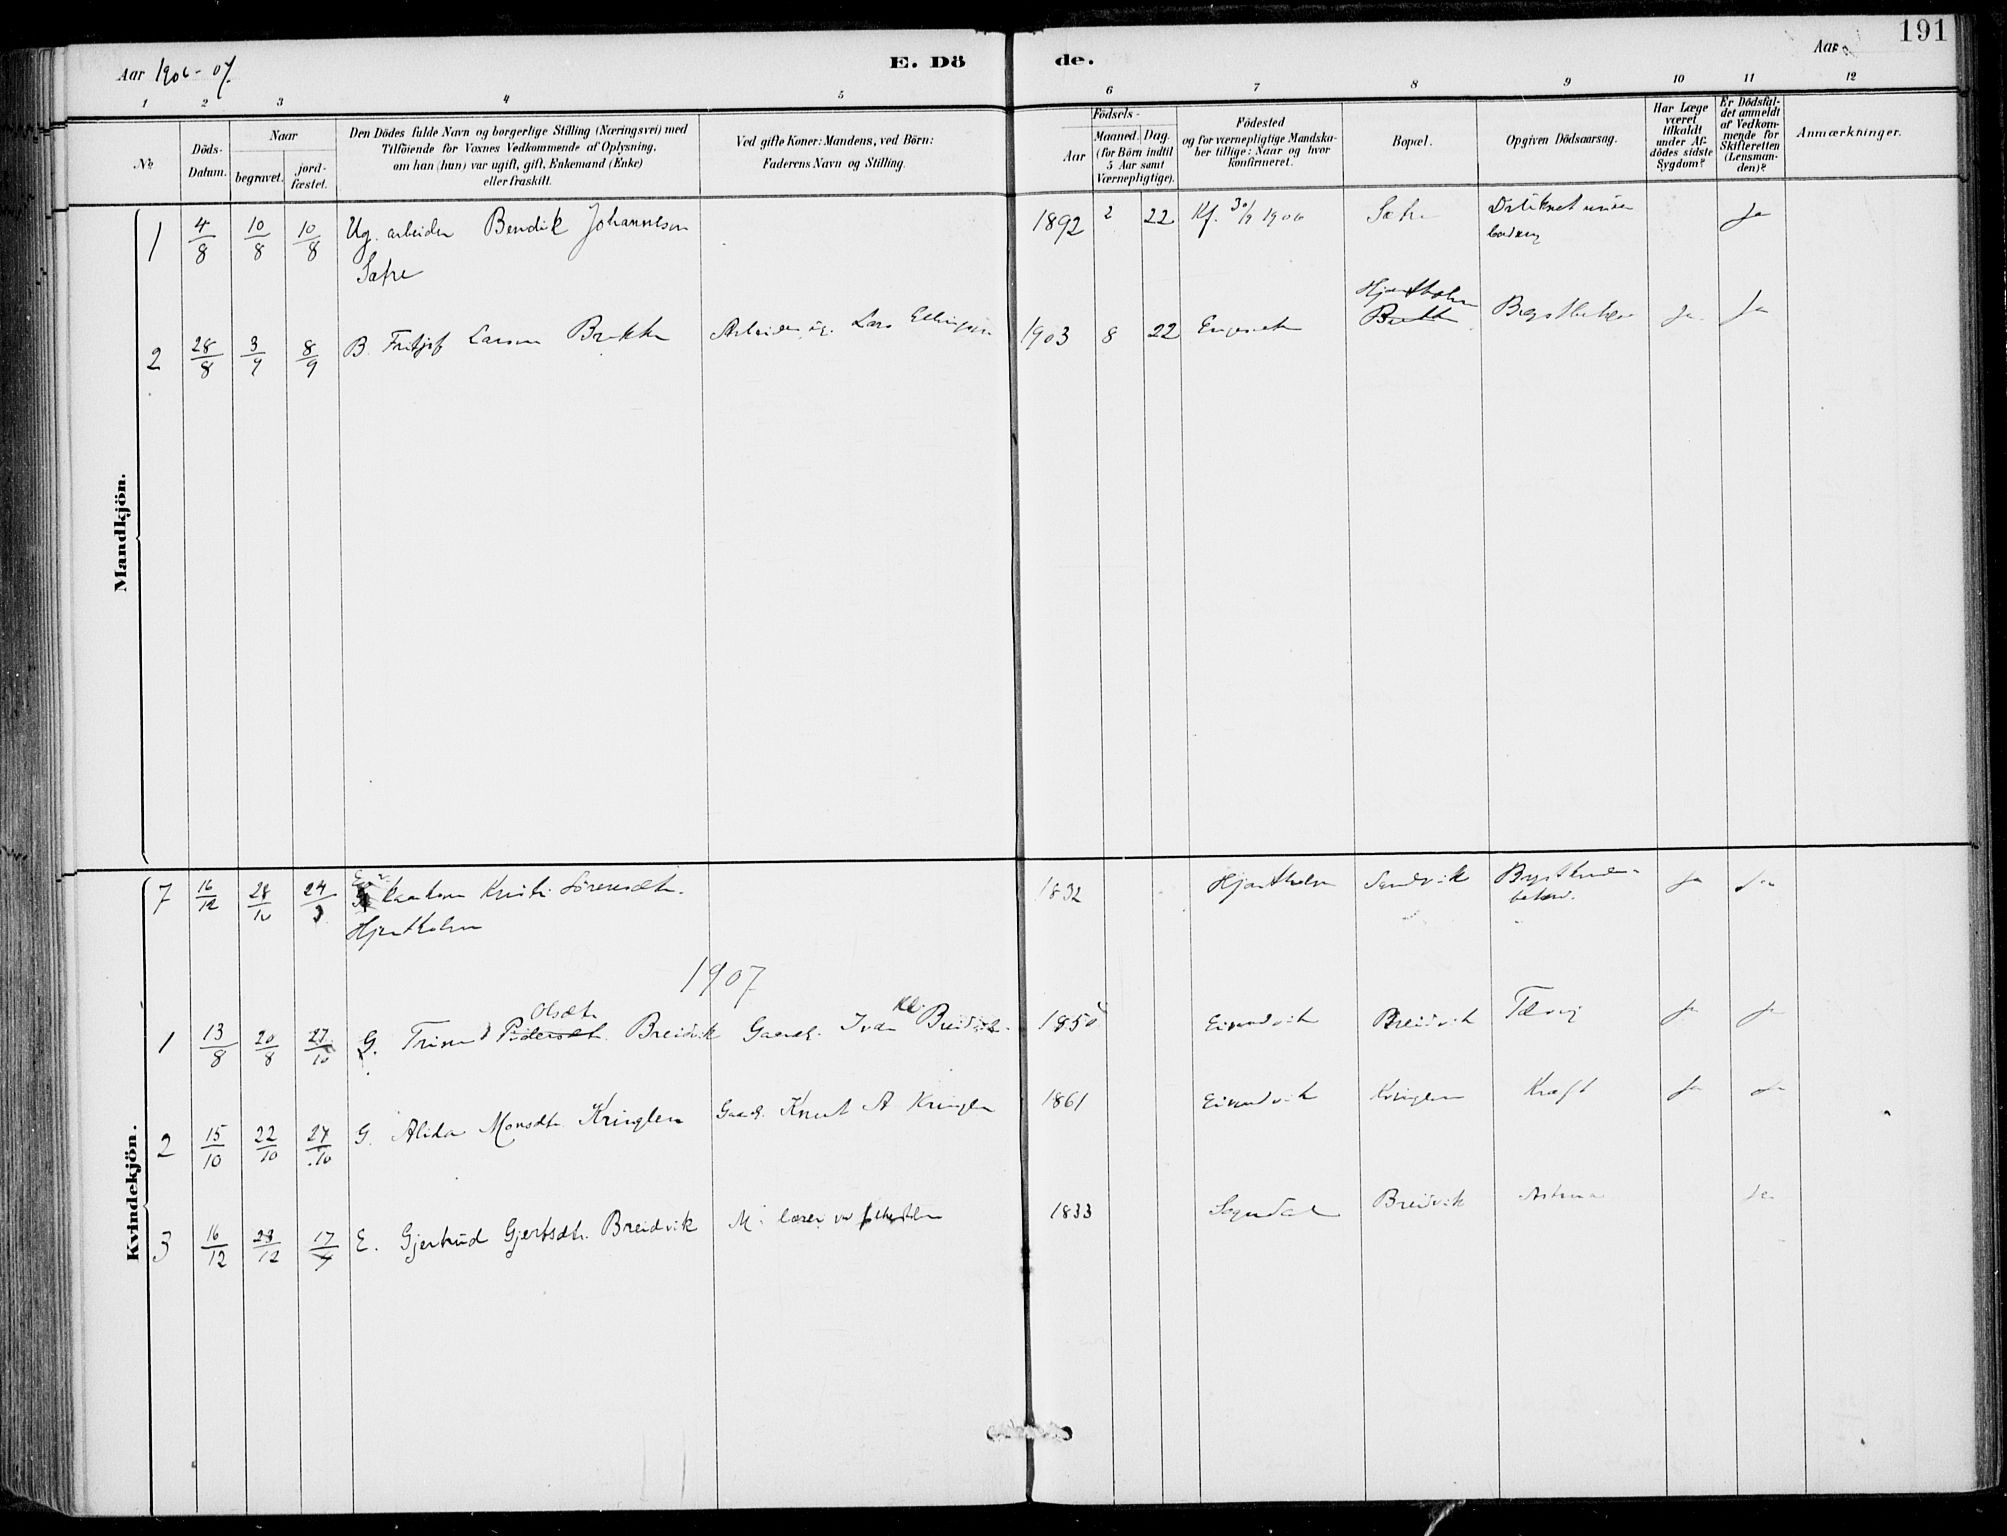 191
Aar 1906-07.
E. Dö
de.
Aar
1 2 3 4 5 6 7 8 9 10 11 12
No
Döds-
Datum.
Naar
begravet.
jord-
fæstet.
Den Dödes fulde Navn og borgerlige Stilling (Næringsvei) med
Tilföiende for Voxnes Vedkommende af Oplysning,
om han (hun) var ugift, gift, Enkemand (Enke)
eller fraskilt.
Ved gifte Koner: Mandens, ved Börn:
Faderens Navn og Stilling.
Födsels-
Aar
Maaned. Dag.
(for Börn indtil
5 Aar samt
Værnepligtige).
Födested
og for værnepligtige Mandska-
ber tillige: Naar og hvor
konfirmeret.
Bopæl.
Opgiven Dödsaarsag.
Har Læge
været
tilkaldt
under Af-
dödes sidste
Sygdom?
Er Dödsfal-
det anmeldt
af Vedkom-
mende for
Skifteretten
(Lensman-
den)?
Anmærkninger.
Mandkjön.
1 4/8 10/8 10/8 Ug. arbeider Bendik Johannesen 1892 2 22 Kf. 30/9 1906 Sætre Ja
Sætre
Hjartholm
2 28/8 3/9 8/9 B. Fritjof Larsen Brekke Arbeider Lars Ellingsen 1903 8 22 Brekke Ja Ja
Kvindekjön.
7 16/12 28/12 Kristi Sörensdtr. 1832 Hjartholm Sandvik Ja Ja
Hjartholm
1907
Olsdtr.
1 13/8 20/8 27/10 G. Trine Pedersdtr. Breidvik Gaardb. Ivar Breidvik 1850 Eivindvik Breidvik Tæring Ja Ja
2 15/10 22/10 27/10 G. Alida Monsdtr. Kringlen Gaardb. Knut A Kringlen 1861 Eivindvik Kringlen Kræft Ja Ja
3 16/12 23/12 17/4 E. Gjertrud Gjertsdtr. Breidvik M. lærer 1833 Sogndal Breidvik Astma Ja